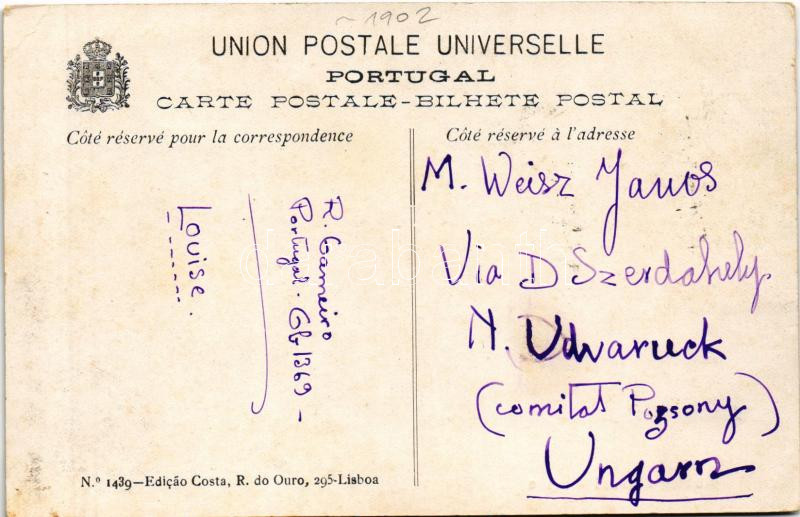 ~1902
UNION POSTALE UNIVERSELLE
PORTUGAL
CARTE POSTALE-BILHETE POSTAL
Côté réservé pour la correspondence
Louise.
R. Gameiro
Portugal. Gb 1369 -
Côté réservé à l'adresse
M. Weisz Janos
Via D Szerdahely
N. Udvaruck
(comitat Pozsony)
Ungarn
N.º 1439—Edição Costa, R. do Ouro, 295-Lisboa